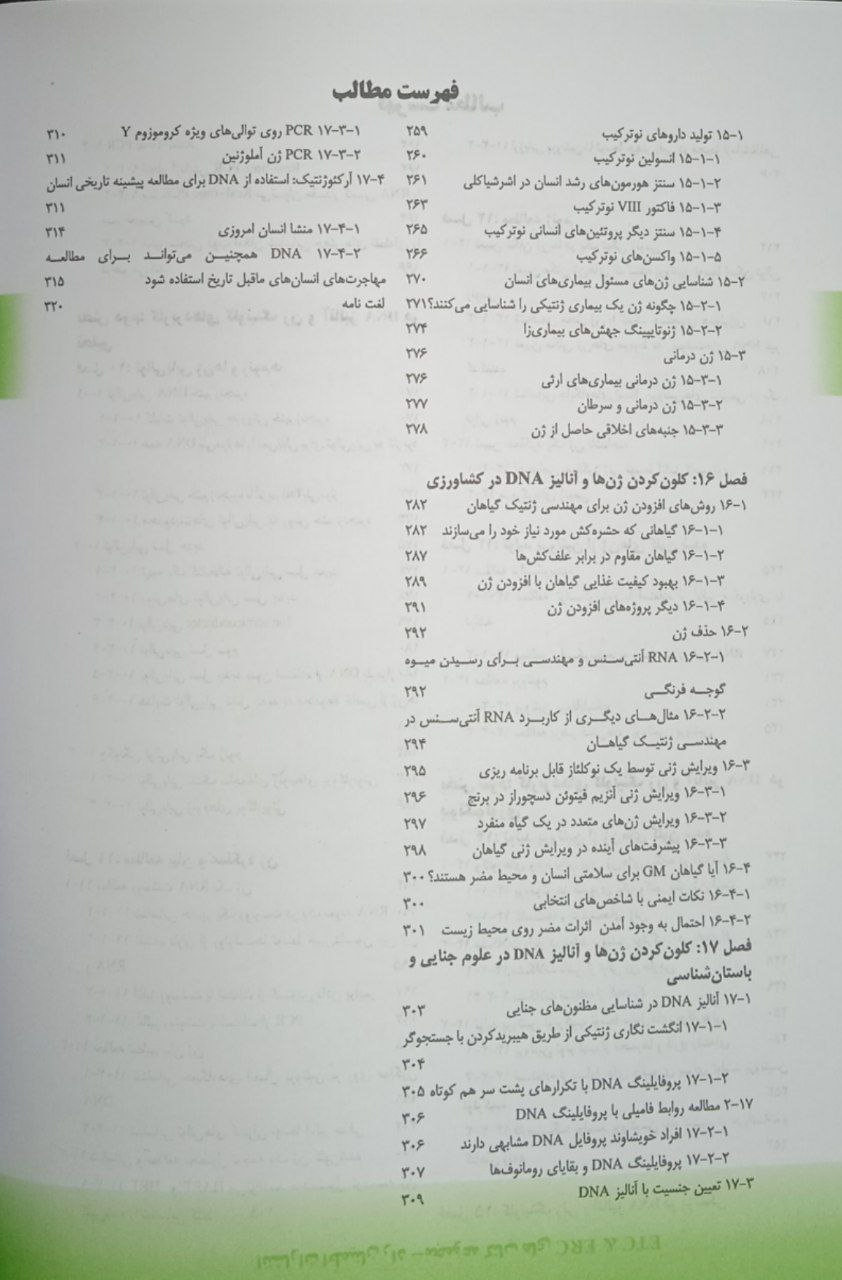 فهرست مطالب
۱۵-۱ تولید داروهای نوترکیب ۲۵۹
۱۵-۱-۱ انسولین نوترکیب ۲۶۰
۱۵-۱-۲ سنتز هورمون‌های رشد انسان در اشرشیاکلی ۲۶۱
۱۵-۱-۳ فاکتور VIII نوترکیب ۲۶۳
۱۵-۱-۴ سنتز دیگر پروتئین‌های انسانی نوترکیب ۲۶۵
۱۵-۱-۵ واکسن‌های نوترکیب ۲۶۶
۱۵-۲ شناسایی ژن‌های مسئول بیماری‌های انسان ۲۷۰
۱۵-۲-۱ چگونه ژن یک بیماری ژنتیکی را شناسایی می‌کنند؟ ۲۷۱
۱۵-۲-۲ ژنوتایپینگ جهش‌های بیماری‌زا ۲۷۴
۱۵-۳ ژن درمانی ۲۷۶
۱۵-۳-۱ ژن درمانی بیماری‌های ارثی ۲۷۶
۱۵-۳-۲ ژن درمانی و سرطان ۲۷۷
۱۵-۳-۳ جنبه‌های اخلاقی حاصل از ژن ۲۷۸
فصل ۱۶: کلون‌کردن ژن‌ها و آنالیز DNA در کشاورزی
۱۶-۱ روش‌های افزودن ژن برای مهندسی ژنتیک گیاهان ۲۸۲
۱۶-۱-۱ گیاهانی که حشره‌کش مورد نیاز خود را می‌سازند ۲۸۲
۱۶-۱-۲ گیاهان مقاوم در برابر علف‌کش‌ها ۲۸۷
۱۶-۱-۳ بهبود کیفیت غذایی گیاهان با افزودن ژن ۲۸۹
۱۶-۱-۴ دیگر پروژه‌های افزودن ژن ۲۹۱
۱۶-۲ حذف ژن ۲۹۲
۱۶-۲-۱ RNA آنتی‌سنس و مهندسی برای رسیدن میوه
گوجه فرنگی ۲۹۲
۱۶-۲-۲ مثال‌های دیگری از کاربرد RNA آنتی‌سنس در
مهندسی ژنتیک گیاهان ۲۹۴
۱۶-۳ ویرایش ژنی توسط یک نوکلئاز قابل برنامه ریزی ۲۹۵
۱۶-۳-۱ ویرایش ژنی آنزیم فیتوئن دسچوراز در برنج ۲۹۶
۱۶-۳-۲ ویرایش ژن‌های متعدد در یک گیاه منفرد ۲۹۷
۱۶-۳-۳ پیشرفت‌های آینده در ویرایش ژنی گیاهان ۲۹۸
۱۶-۴ آیا گیاهان GM برای سلامتی انسان و محیط مضر هستند؟ ۳۰۰
۱۶-۴-۱ نکات ایمنی با شاخص‌های انتخابی ۳۰۰
۱۶-۴-۲ احتمال به وجود آمدن اثرات مضر روی محیط زیست ۳۰۱
فصل ۱۷: کلون‌کردن ژن‌ها و آنالیز DNA در علوم جنایی و
باستان‌شناسی
۱۷-۱ آنالیز DNA در شناسایی مظنون‌های جنایی ۳۰۳
۱۷-۱-۱ انگشت نگاری ژنتیکی از طریق هیبریدکردن با جستجوگر
۳۰۴
۱۷-۱-۲ پروفایلینگ DNA با تکرارهای پشت سر هم کوتاه ۳۰۵
۲-۱۷ مطالعه روابط فامیلی با پروفایلینگ DNA ۳۰۶
۱۷-۲-۱ افراد خویشاوند پروفایل DNA مشابهی دارند ۳۰۶
۱۷-۲-۲ پروفایلینگ DNA و بقایای رومانوف‌ها ۳۰۷
۱۷-۳ تعیین جنسیت با آنالیز DNA ۳۰۹
۱۷-۳-۱ PCR روی توالی‌های ویژه کروموزوم Y ۳۱۰
۱۷-۳-۲ PCR ژن آملوژنین ۳۱۱
۱۷-۴ آرکئوژنتیک: استفاده از DNA برای مطالعه پیشینه تاریخی انسان
۳۱۱
۱۷-۴-۱ منشا انسان امروزی ۳۱۴
۱۷-۴-۲ DNA همچنین می‌تواند برای مطالعه
مهاجرت‌های انسان‌های ماقبل تاریخ استفاده شود ۳۱۵
لغت نامه ۳۲۰